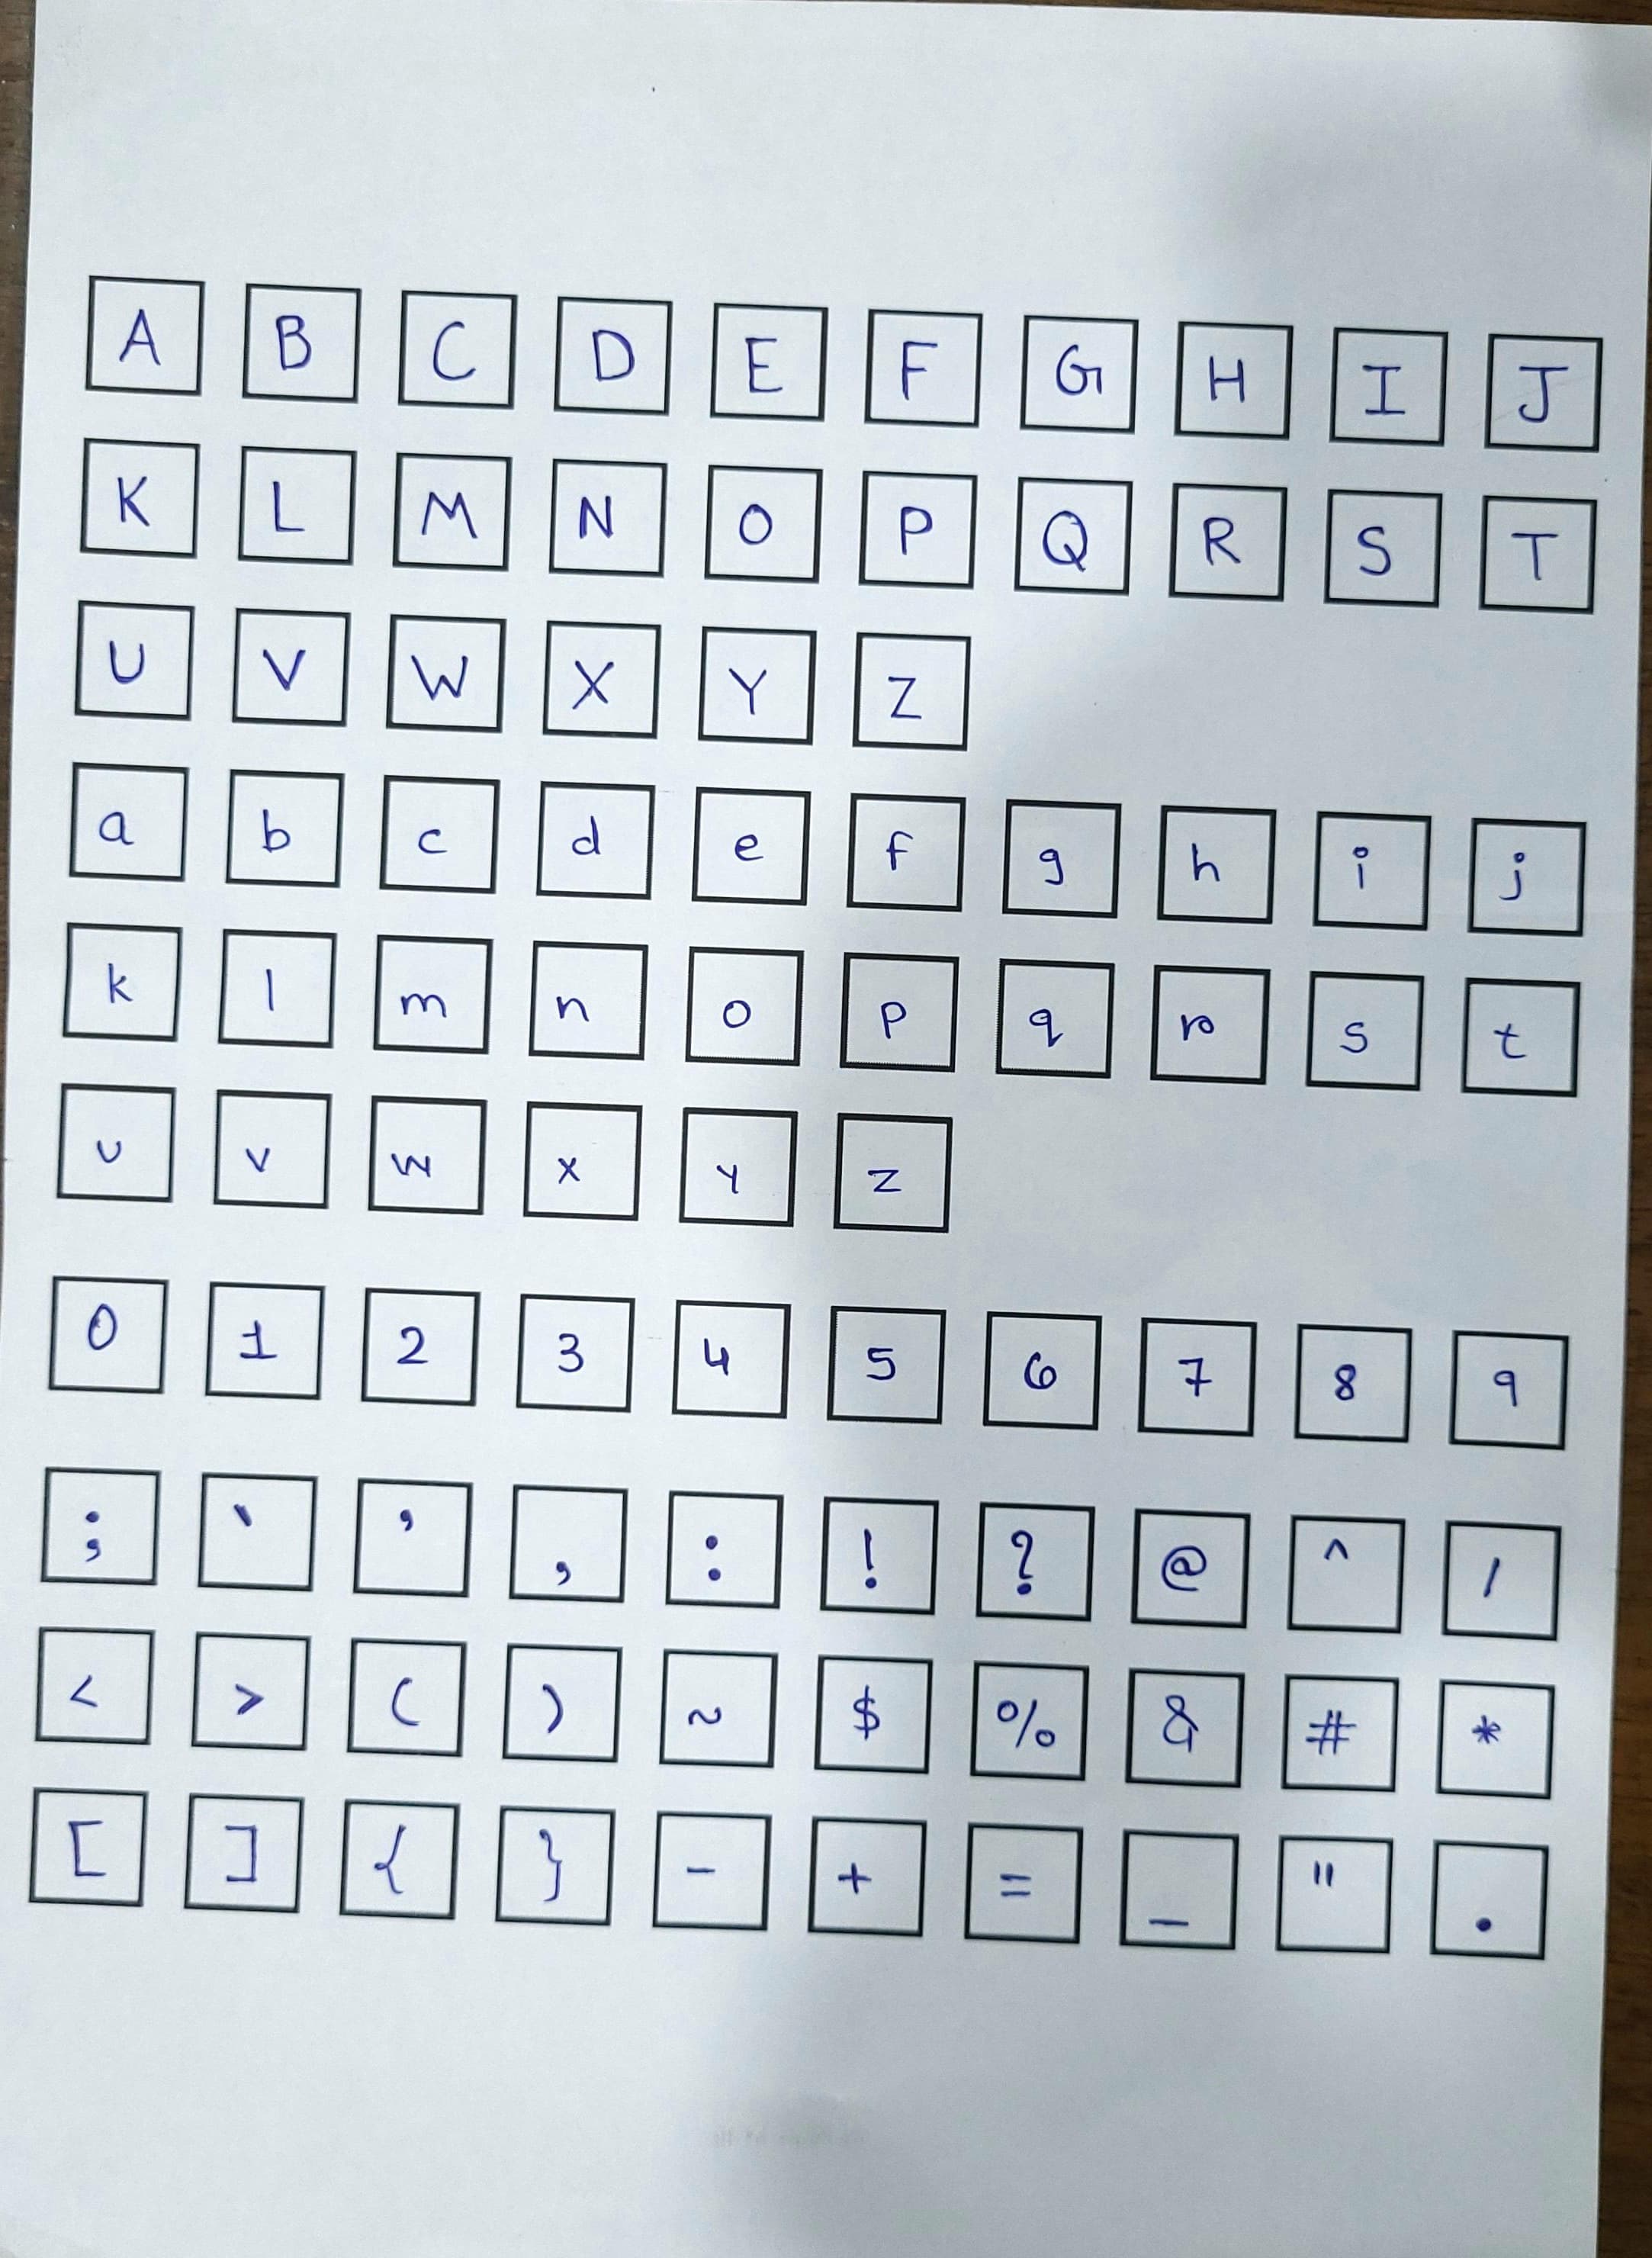 A B C D E F G H I J
K L M N O P Q R S T
U V W X Y Z
a b c d e f g h i j
k l m n o p q r s t
u v w x y z
0 1 2 3 4 5 6 7 8 9
; ` ' , : ! ? @ ^ /
< > ( ) ~ $ % & # *
[ ] { } - + = _ " .